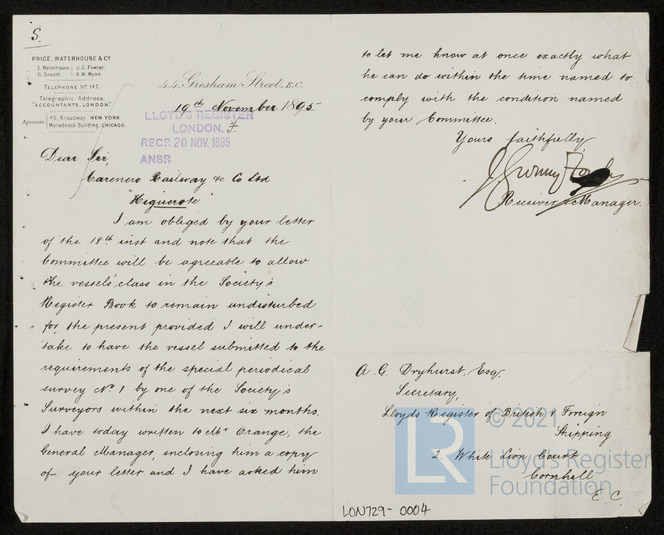 S.
PRICE, WATERHOUSE & Cº
E. Waterhouse. J. G. Fowler.
G. Sneath. A. W. Wyon.
TELEPHONE Nº 147.
Telegraphic Address,
"ACCOUNTANTS, LONDON."
Agencies 45, Broadway, NEW YORK.
Monadnock Building, CHICAGO.
44, Gresham Street, E.C.
19th November 1895
LLOYD'S REGISTER
LONDON.
RECD 20 NOV. 1895
ANSD
Dear Sir,
Carenero Railway &c Co Ltd
"Higuerote"
I am obliged by your letter
of the 18th inst and note that the
Committee will be agreeable to allow
the vessels' class in the Society's
Register Book to remain undisturbed
for the present provided I will under-
take to have the vessel submitted to the
requirements of the special periodical
survey No. 1 by one of the Society's
Surveyors within the next six months.
I have today written to Mr Orange, the
General Manager, inclosing him a copy
of your letter and I have asked him
to let me know at once exactly what
he can do within the time named to
comply with the condition named
by your Committee.
Yours faithfully
Receiver & Manager.
A. G. Dryhurst, Esq.
Secretary,
Lloyds Register of British & Foreign
Shipping
2 White Lion Court
Cornhill
E.C.
LR
© 2021
Lloyd's Register
Foundation
LON729-0004